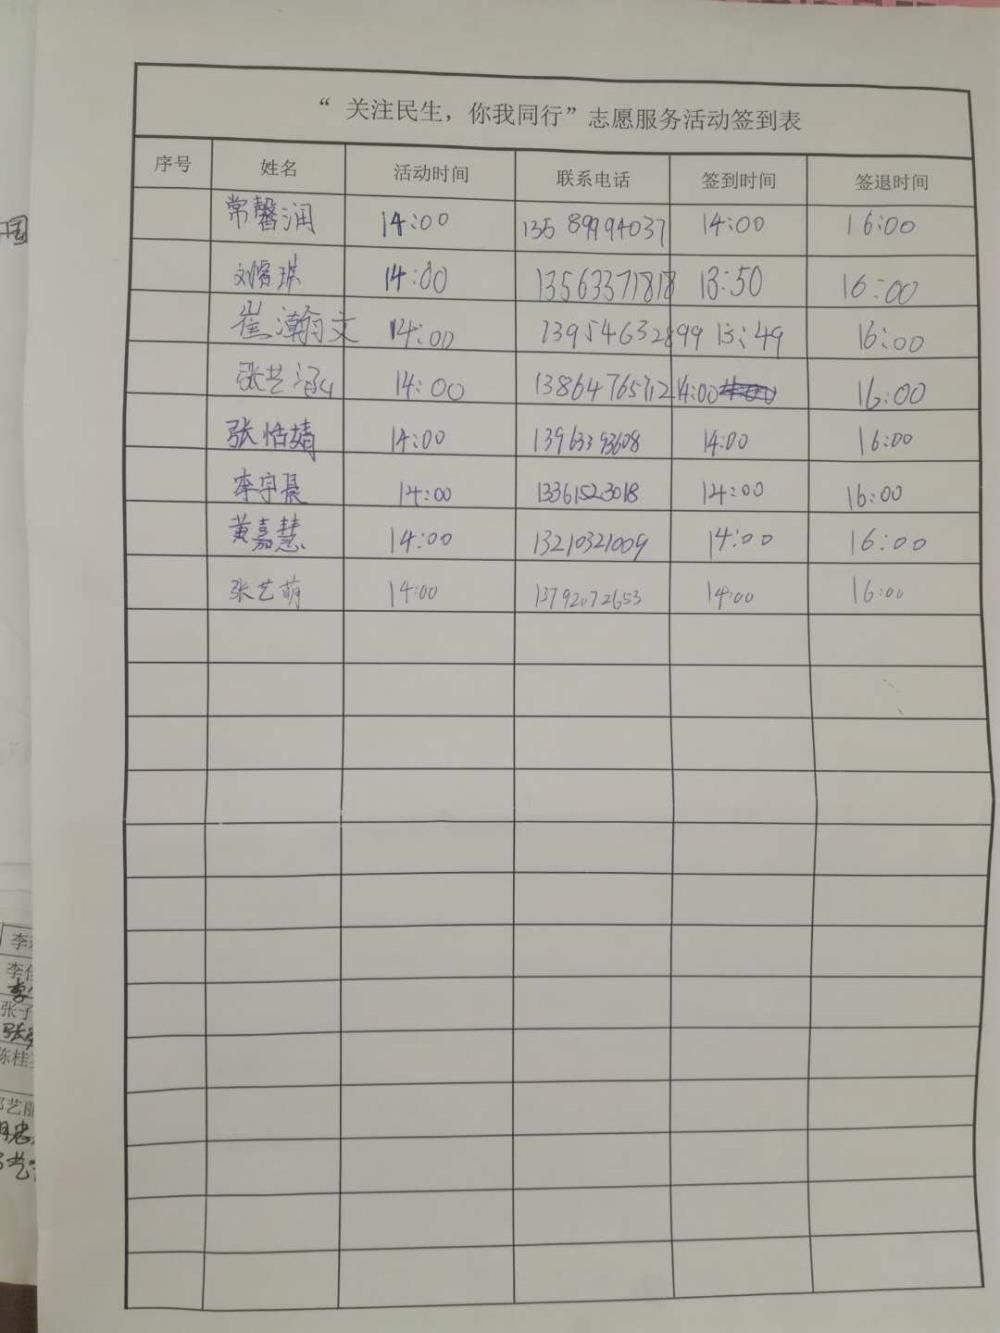 “关注民生，你我同行”志愿服务活动签到表
序号 姓名 活动时间 联系电话 签到时间 签退时间
常馨润 14:00 13589994037 14:00 16:00
刘睿琪 14:00 13563371818 13:50 16:00
崔瀚文 14:00 13954632899 13:49 16:00
张艺涵 14:00 13864765712 14:00 16:00
张恬婧 14:00 13963393608 14:00 16:00
李宇晨 14:00 13361523018 14:00 16:00
黄嘉慧 14:00 13210321009 14:00 16:00
张艺萌 14:00 13792072653 14:00 16:00
国
李
李
张子
陈桂
艺丽